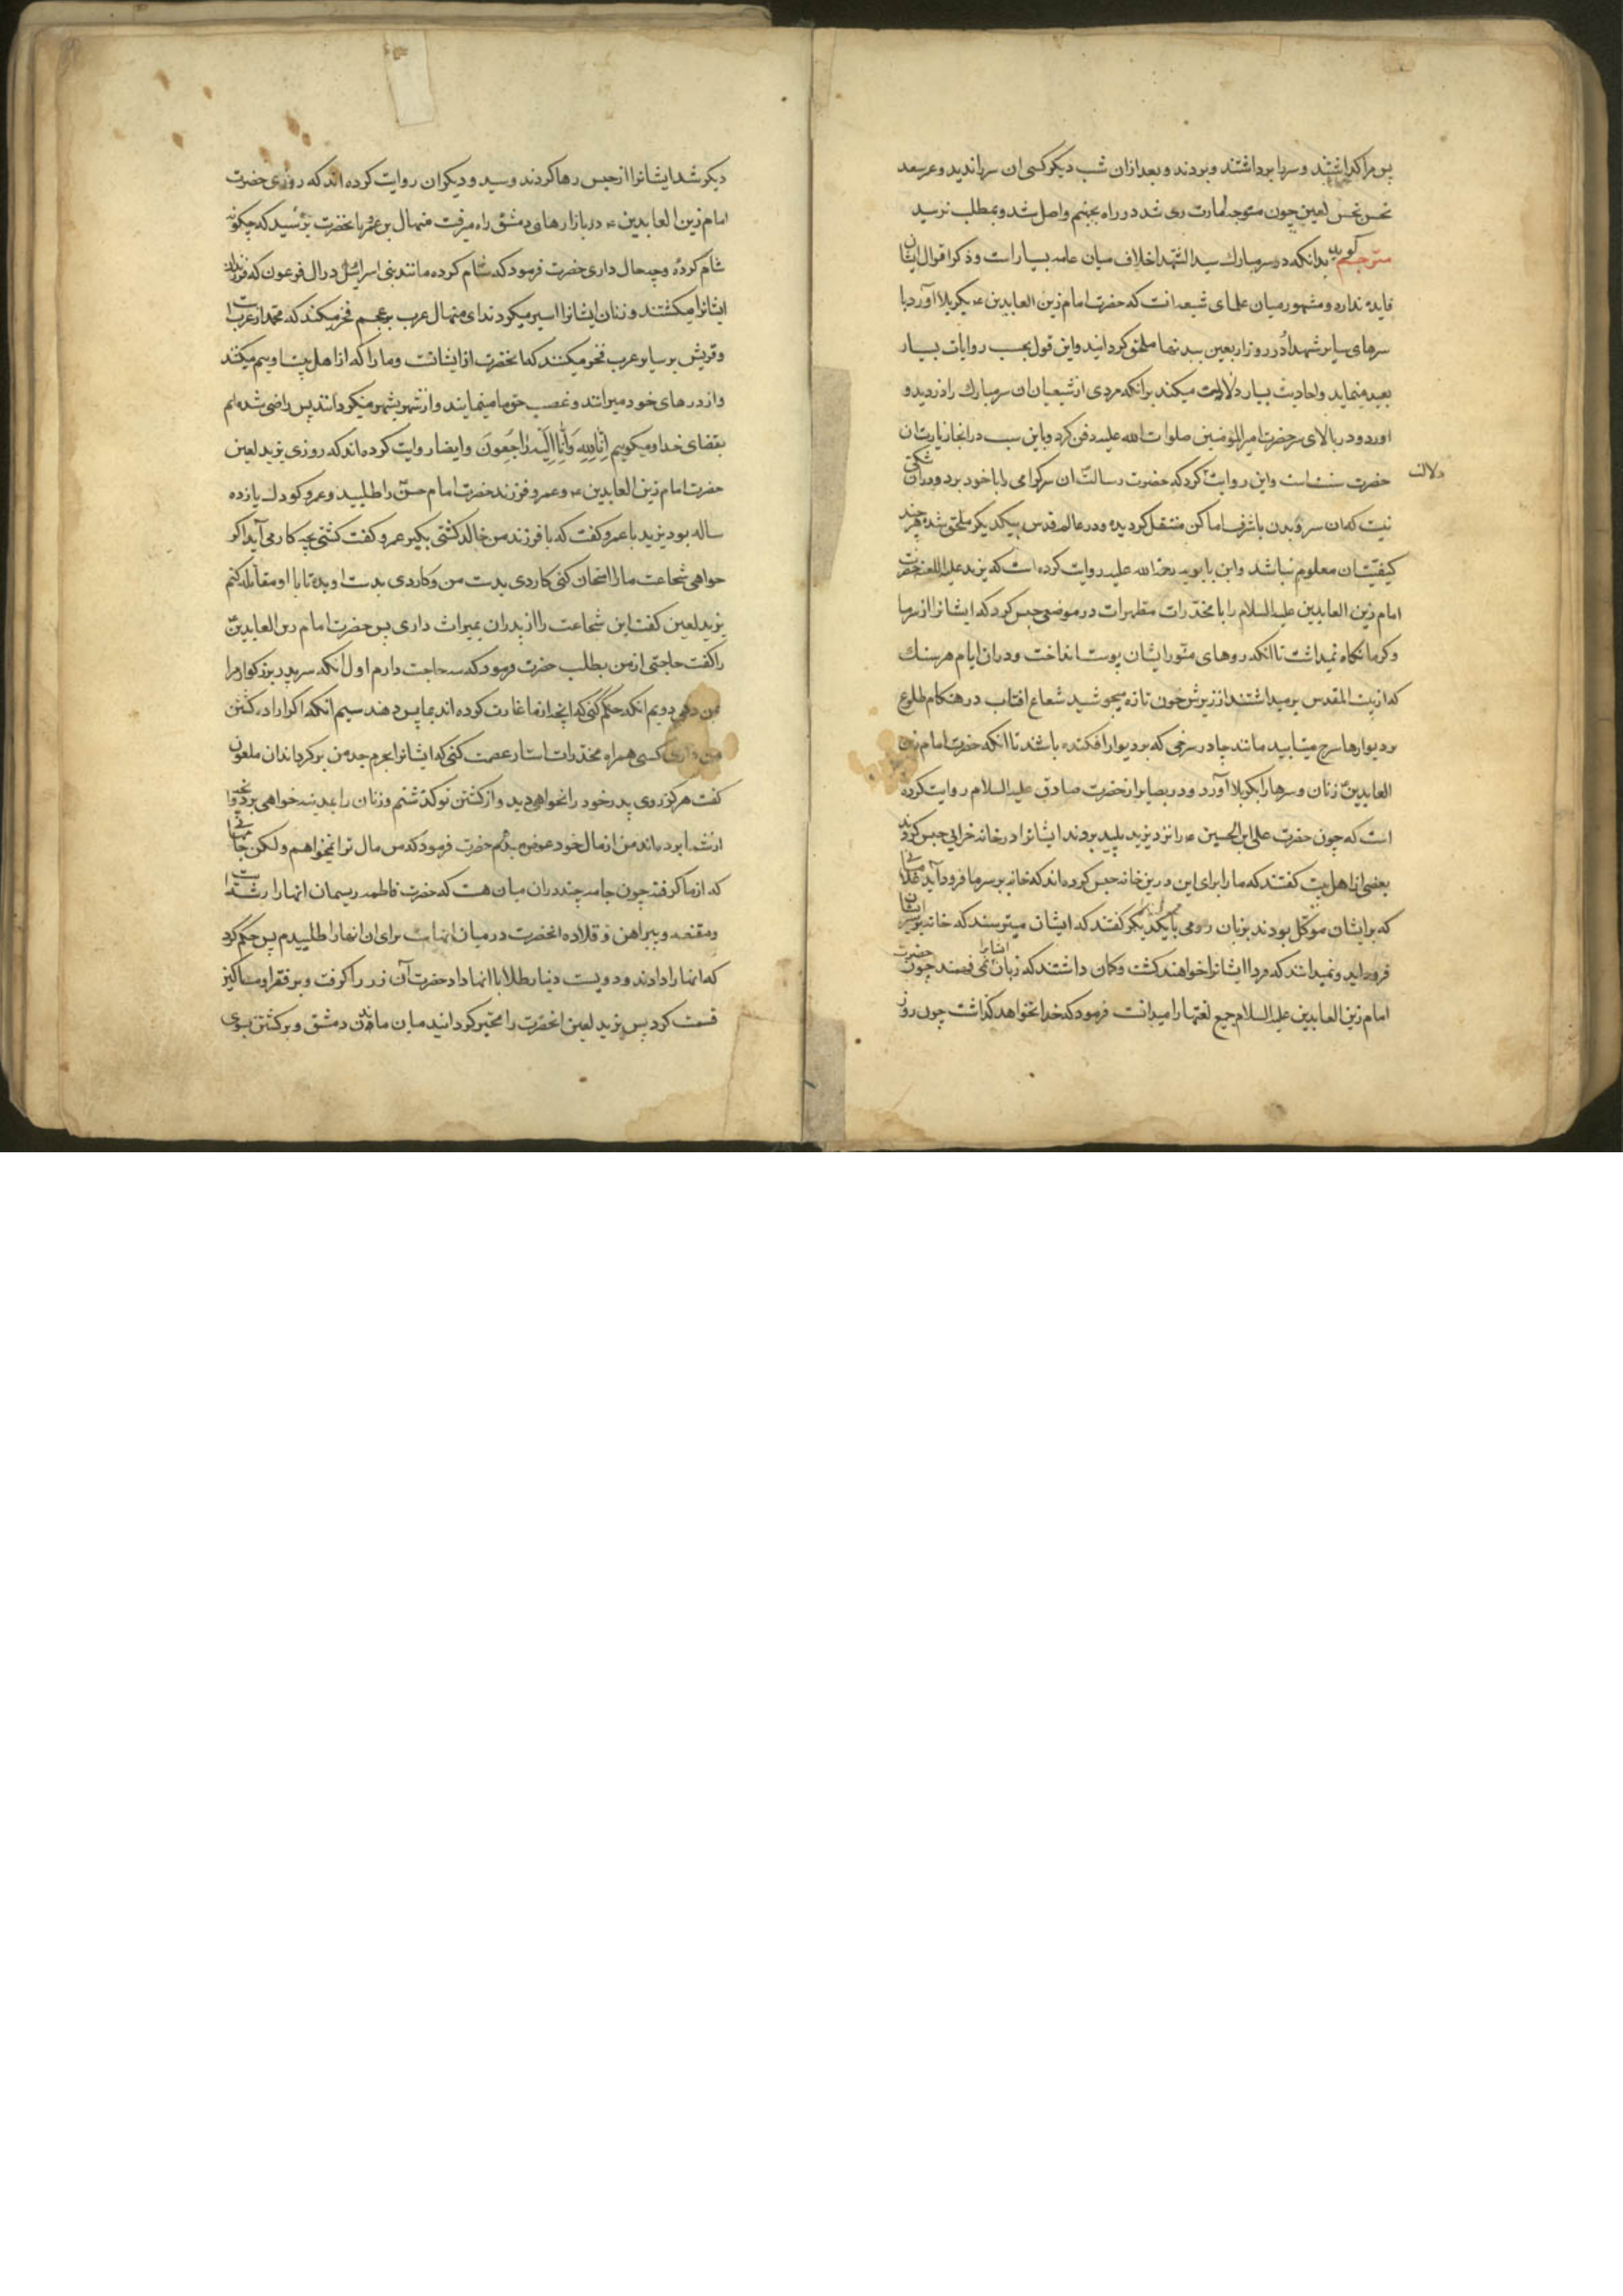 پس مرا گذاشتند و سرها برداشتند و بردند و بعد از ان شب دیگر کسی ان سرها ندید و عمر سعد
نحس نجس لعین چون متوجه امارت ری شد در راه بجهنم واصل شد و بمطلب نرسید
مترجم گوید بدانکه در سر مبارک سید الشهدا خلاف میان عامه بسیار است و ذکر اقوال ایشان
فایده ندارد و مشهور میان علمای شیعه انست که حضرت امام زین العابدین ع بکربلا آورد با
سرهای سایر شهدا و در روز اربعین ببدنها ملحق گردانید و این قول بحسب روایات بسیار
بعید مینماید و احادیث بسیار دلالت میکند برانکه مردی از شیعیان ان سر مبارک را دزدید و
اورد و در بالای سر حضرت امیر المؤمنین صلوات الله علیه دفن کرد و باین سبب در انجا زیارت ان
حضرت سنت است و این روایت کرد که حضرت رسالت ان سر گرامی را با خود برد و دران شکی
دلالت
نیست که ان سر و بدن باشرف اماکن منتقل گردیده و در عالم قدس بیکدیگر ملحق شده هر چند
کیفیت ان معلوم نباشد و ابن بابویه رحمة الله علیه روایت کرده است که یزید علیه اللعنه حضرت
امام زین العابدین علیه السلام را با مخدرات مطهرات در موضعی حبس کرد که ایشانرا از سرما
و گرما نگاه نمیداشت تا انکه روهای منور ایشان پوست انداخت و دران ایام هر سنک
که از بیت المقدس برمیداشتند از زیرش خون تازه میجوشید شعاع افتاب در هنکام طلوع
بر دیوارها سرخ میتابید مانند چادر سرخی که بر دیوار افکنده باشند تا انکه حضرت امام زین
العابدین زنان و سرها را بکربلا آورد و در بصایر از حضرت صادق علیه السلام روایت کرده
است که چون حضرت علی ابن الحسین ع را نزد یزید پلید بردند ایشانرا در خانه خرابی حبس کردند
بعضی از اهل بیت گفتند که ما را برای این درین خانه حبس کرده اند که خانه بر سر ما فرود آید غلامانی
که بر ایشان موکل بودند بزبان رومی با یکدیگر گفتند که ایشان میترسند که خانه بر سر ایشان
فرود آید و نمیدانند که فردا ایشانرا خواهند کشت و گمان داشتند که زبان ایشانرا نمی فهمند چون حضرت
امام زین العابدین علیه السلام جمیع لغتها را میدانست فرمود که خدا نخواهد گذاشت چون روز
دیگر شد ایشانرا از حبس رها کردند و سید و دیگران روایت کرده اند که روزی حضرت
امام زین العابدین ع در بازارهای دمشق راه میرفت منهال بن عمرو بانحضرت رسید پرسید که چگونه
شام کردهٔ و چه حال داری حضرت فرمود که شام کرده مانند بنی اسرائیل در ال فرعون که فرزندان
ایشانرا میکشتند و زنان ایشانرا اسیر میکردند ای منهال عرب بر عجم فخر میکند که محمد از عرب است
و قریش بر سایر عرب فخر میکنند که انحضرت از ایشانست و ما را که از اهل بیت اوییم میکشند
و از درهای خود میرانند و غصب حق ما مینمایند و از شهر بشهر میگردانند پس راضی شده ایم
بقضای خدا و میگوییم اِنّا لِلّهِ وَ اِنّا اِلَیهِ راجِعُونَ و ایضا روایت کرده اند که روزی یزید لعین
حضرت امام زین العابدین ع و عمرو فرزند حضرت امام حسن را طلبید و عمرو کودک یازده
ساله بود یزید با عمرو گفت که با فرزند من خالد کشتی بگیر عمرو گفت کشتی بچه کار می آید اگر
خواهی شجاعت ما را امتحان کنی کاردی بدست من و کاردی بدست او بده تا با او مقابله کنم
یزید لعین گفت این شجاعت را از پدران بمیراث داری پس حضرت امام زین العابدین
را گفت حاجتی از من بطلب حضرت فرمود که سه حاجت دارم اول انکه سر پدر بزرگوار مرا
بمن دهی دویم انکه حکم کنی که انچه از ما غارت کرده اند بما پس دهند سیم انکه اگر اراده کشتن
من داری کسی همراه مخدرات استار عصمت کنی که ایشانرا بحرم جد من برگرداند ان ملعون
گفت هرگز روی پدر خود را نخواهی دید و از کشتن تو گذشتم و زنان را بمدینه خواهی برد و انچه
از شما برده اند من از مال خود عوض میدهم حضرت فرمود که من مال ترا نمیخواهم و لکن جامهائی
که از ما گرفته چون جامه چند دران میان هست که حضرت فاطمه ریسمان انها را رشته است
و مقنعه و پیراهن و قلاده انحضرت در میان انهاست برای ان انها را طلبیدم پس حکم کرد
که انها را دادند و دویست دینار طلا با انها داد حضرت آن زر را گرفت و بر فقرا و مساکین
قسمت کرد پس یزید لعین انحضرت را مخیر گردانید میان ماندن دمشق و برگشتن بسوی